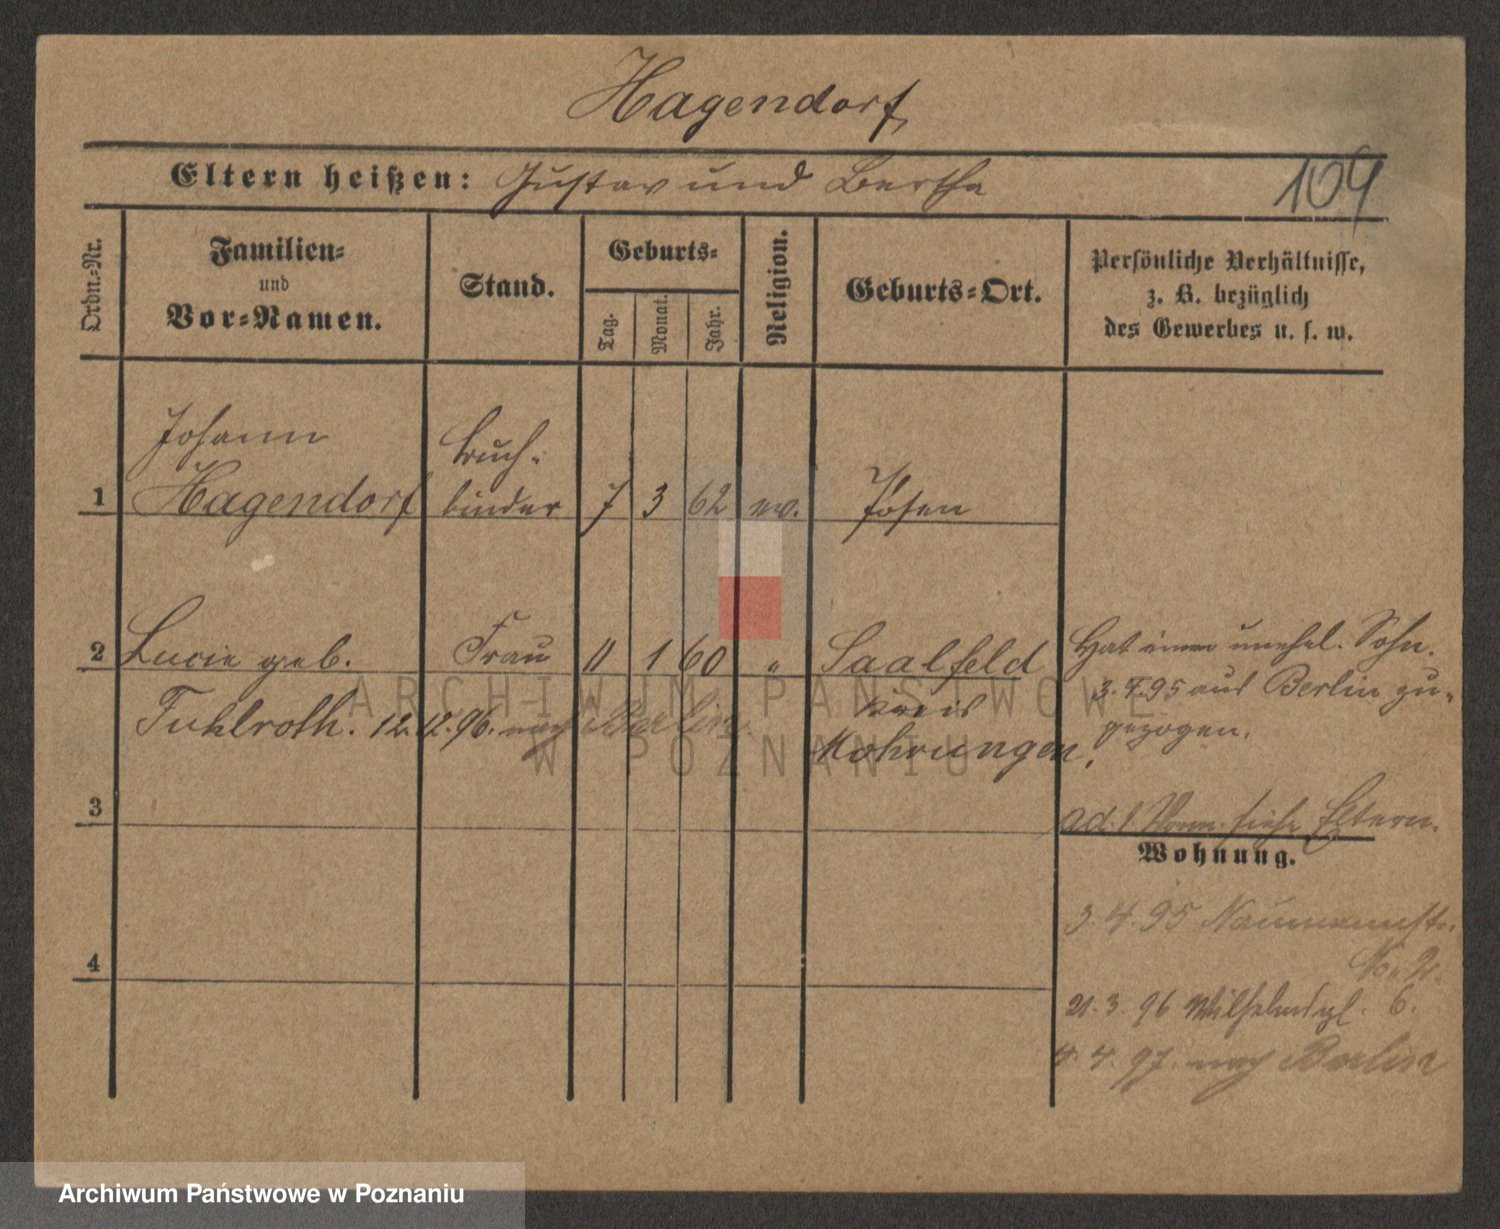 Hagendorf
Eltern heißen: Gustav und Bertha
109
Ordn.=Nr.
Familien=
und
Vor=Namen.
Stand.
Geburts=
Tag.
Monat.
Jahr.
Religion.
Geburts=Ort.
Persönliche Verhältnisse,
z. B. bezüglich
des Gewerbes u. s. w.
Johann
Buch-
1 Hagendorf binder 7 3 62 ev. Posen
2 Lucie geb. Frau 11 1 60 " Saalfeld
Tuhlroth. 12.12.96. nach Berlin.
Kreis
Mohrungen,
Hat einen unehel. Sohn.
3.4.95 aus Berlin zu-
gezogen.
3
ad. 1 Verm. siehe Eltern.
Wohnung.
3.4.95 Naumannstr.
No
4
21.3.96 Wilhelmspl. 6.
4.4.97. nach Berlin
ARCHIWUM PAŃSTWOWE
W POZNANIU
Archiwum Państwowe w Poznaniu